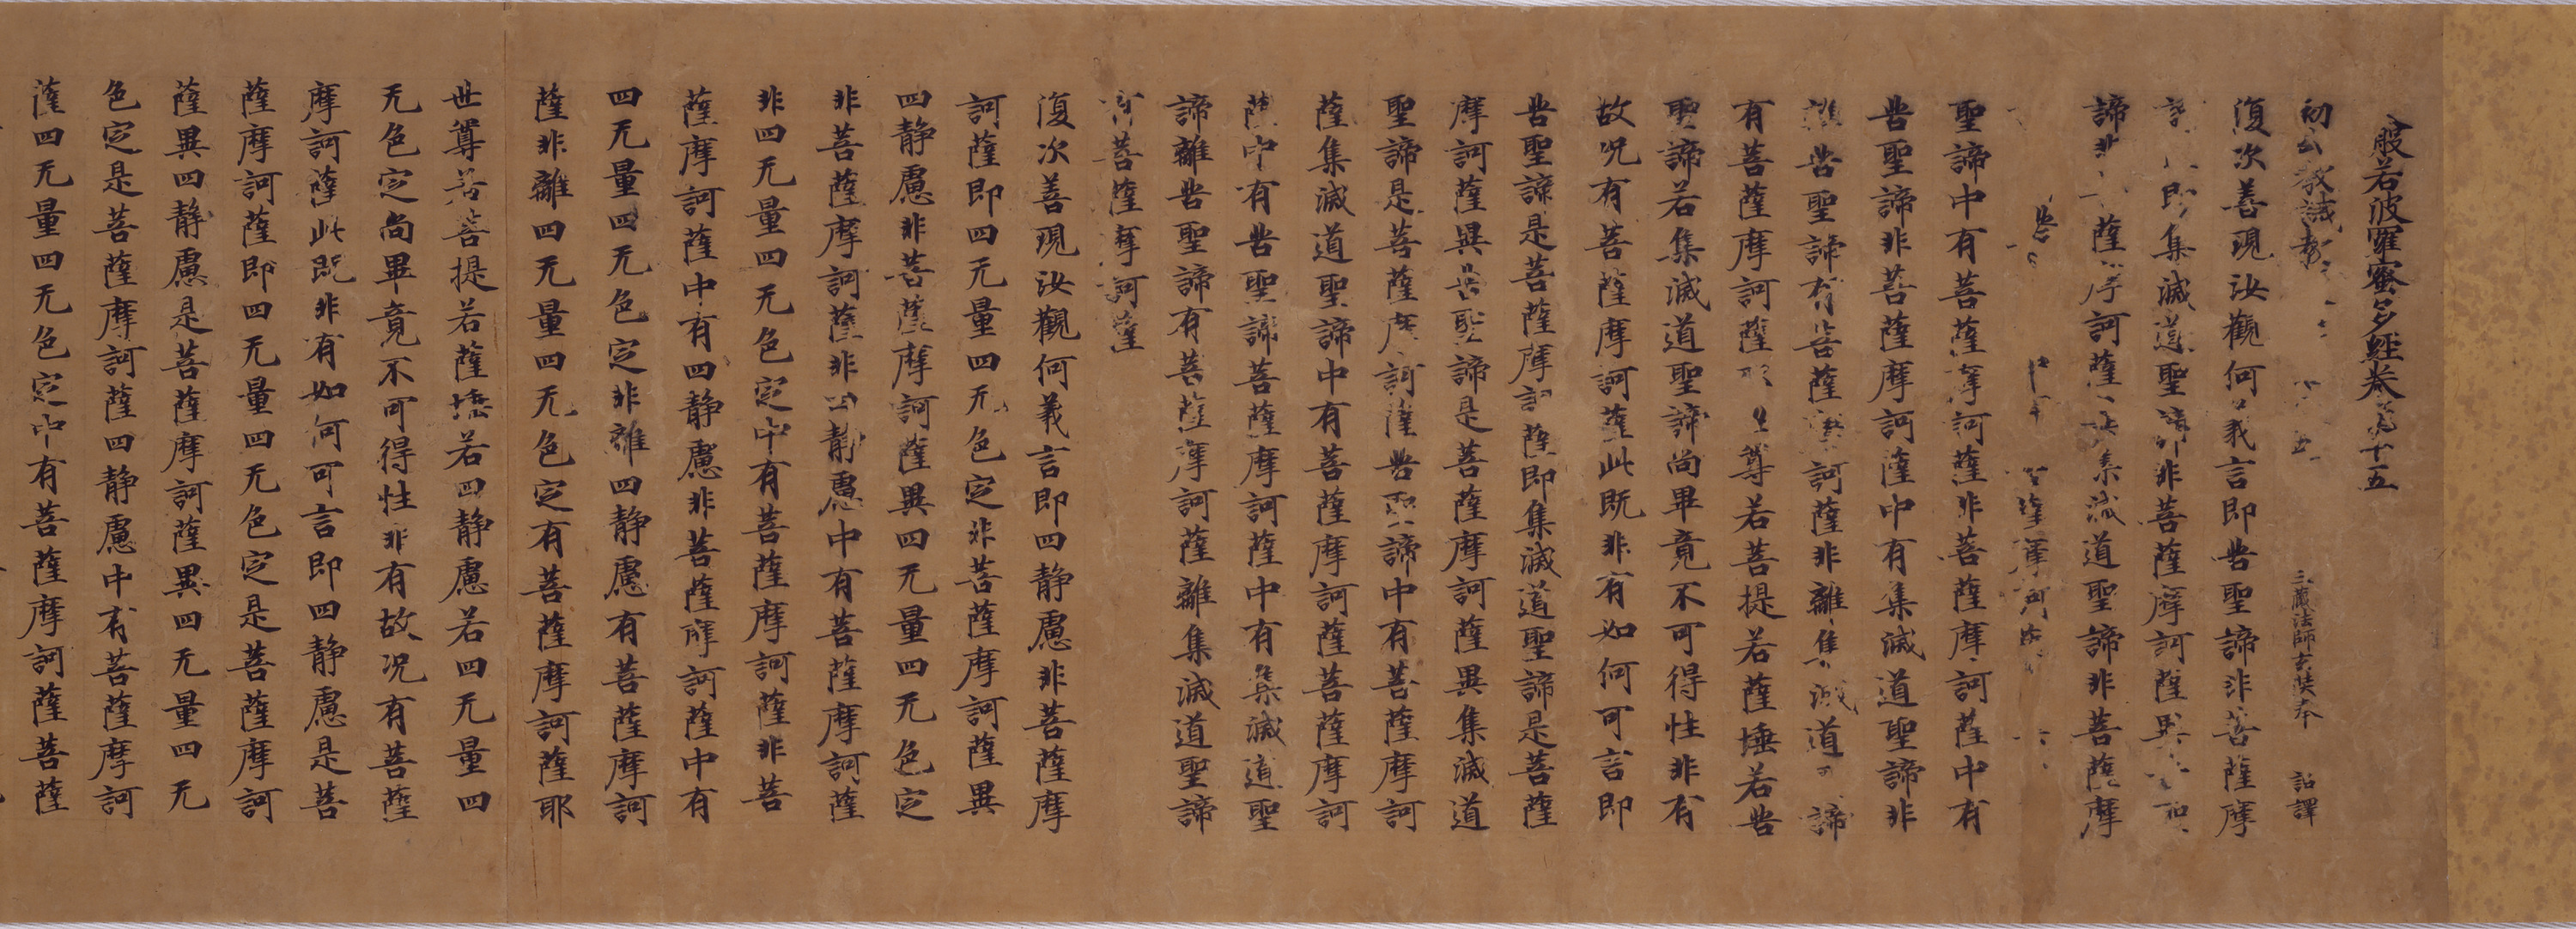 般若波羅蜜多經卷第十五
初分教誡教 五 三藏法師玄奘奉 詔譯
復次善現汝觀何義言即苦聖諦非菩薩摩
訶 即集滅道聖諦非菩薩摩訶薩異 聖
諦非 薩摩訶薩 集滅道聖諦非菩薩摩
苦 中 薩摩訶薩
聖諦中有菩薩摩訶薩非菩薩摩訶薩中有
苦聖諦非菩薩摩訶薩中有集滅道聖諦非
離苦聖諦有菩薩摩訶薩非離集滅道 諦
有菩薩摩訶薩耶世尊若菩提若薩埵若苦
聖諦若集滅道聖諦尚畢竟不可得性非有
故況有菩薩摩訶薩此既非有如何可言即
苦聖諦是菩薩摩訶薩即集滅道聖諦是菩薩
摩訶薩異苦聖諦是菩薩摩訶薩異集滅道
聖諦是菩薩摩訶薩苦聖諦中有菩薩摩訶
薩集滅道聖諦中有菩薩摩訶薩菩薩摩訶
薩中有苦聖諦菩薩摩訶薩中有集滅道聖
諦離苦聖諦有菩薩摩訶薩離集滅道聖諦
有菩薩摩訶薩
復次善現汝觀何義言即四静慮非菩薩摩
訶薩即四无量四无色定非菩薩摩訶薩異
四静慮非菩薩摩訶薩異四无量四无色定
非菩薩摩訶薩非四静慮中有菩薩摩訶薩
非四无量四无色定中有菩薩摩訶薩非菩
薩摩訶薩中有四静慮非菩薩摩訶薩中有
四无量四无色定非離四静慮有菩薩摩訶
薩非離四无量四无色定有菩薩摩訶薩耶
世尊若菩提若薩埵若四静慮若四无量四
无色定尚畢竟不可得性非有故況有菩薩
摩訶薩此既非有如何可言即四静慮是菩
薩摩訶薩即四无量四无色定是菩薩摩訶
薩異四静慮是菩薩摩訶薩異四无量四无
色定是菩薩摩訶薩四静慮中有菩薩摩訶
薩四无量四无色定中有菩薩摩訶薩菩薩